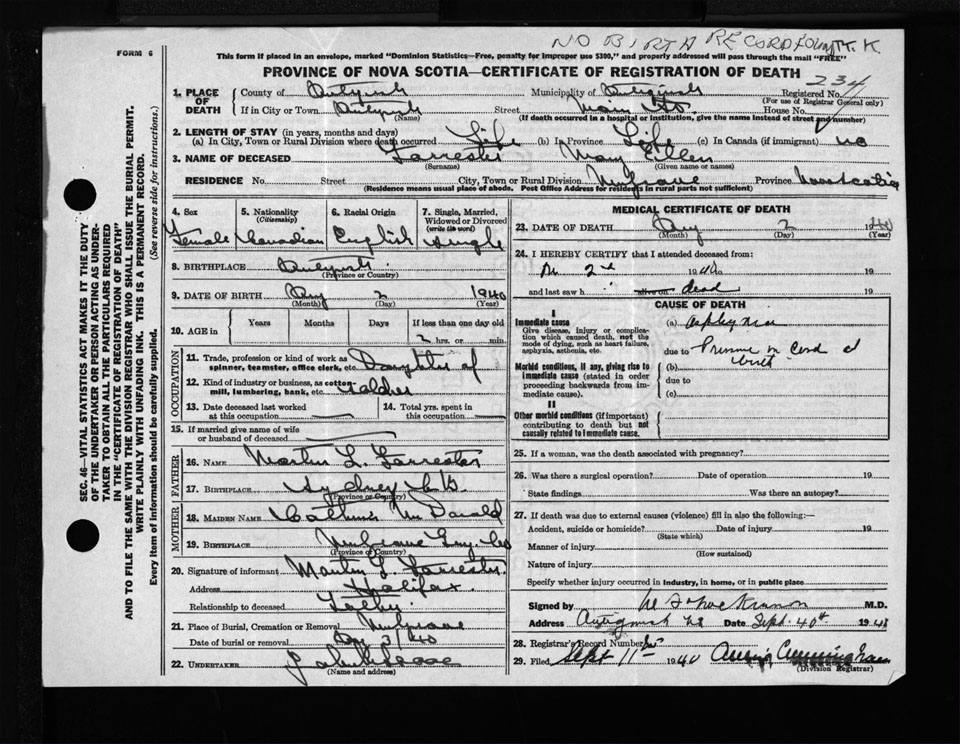 NO BIRTH RECORD FOUND K. K.
FORM 6
This form if placed in an envelope, marked "Dominion Statistics—Free, penalty for improper use $300," and properly addressed will pass through the mail "FREE"
PROVINCE OF NOVA SCOTIA—CERTIFICATE OF REGISTRATION OF DEATH
234
1. PLACE OF DEATH
County of Antigonish Municipality of Antigonish Registered No.
(For use of Registrar General only)
If in City or Town Antigonish Street Main St. House No.
(Name) (If death occurred in a hospital or institution, give the name instead of street and number)
2. LENGTH OF STAY (in years, months and days)
(a) In City, Town or Rural Division where death occurred Life (b) In Province Life (c) In Canada (if immigrant) no
3. NAME OF DECEASED Forrester Mary Ellen
(Surname) (Given name or names)
RESIDENCE No. Street City, Town or Rural Division Mulgrave Province Nova Scotia
(Residence means usual place of abode. Post Office Address for residents in rural parts not sufficient)
4. Sex
Female
5. Nationality
(Citizenship)
Canadian
6. Racial Origin
English
7. Single, Married, Widowed or Divorced
(write the word)
Single
8. BIRTHPLACE Antigonish
(Province or Country)
9. DATE OF BIRTH Aug 2 1940
(Month) (Day) (Year)
10. AGE in
Years Months Days If less than one day old
2 hrs. or min.
OCCUPATION
11. Trade, profession or kind of work as spinner, teamster, office clerk, etc. Daughter of
12. Kind of industry or business, as cotton mill, lumbering, bank, etc. Soldier
13. Date deceased last worked at this occupation
14. Total yrs. spent in this occupation
15. If married give name of wife or husband of deceased
FATHER
16. NAME Martin L. Forrester
17. BIRTHPLACE Sydney C.B.
(Province or Country)
MOTHER
18. MAIDEN NAME McDonald
19. BIRTHPLACE Mulgrave Guy. Co
(Province or Country)
20. Signature of informant Martin L Forrester
Address Halifax
Relationship to deceased Father
21. Place of Burial, Cremation or Removal Mulgrave
Date of burial or removal Aug 3/40
22. UNDERTAKER
(Name and address)
MEDICAL CERTIFICATE OF DEATH
23. DATE OF DEATH Aug 2 1940
(Month) (Day) (Year)
24. I HEREBY CERTIFY that I attended deceased from:
2nd 1940 19
and last saw h alive on dead 19
CAUSE OF DEATH
I
Immediate cause
Give disease, injury or complication which caused death, not the mode of dying, such as heart failure, asphyxia, asthenia, etc.
Morbid conditions, if any, giving rise to immediate cause (stated in order proceeding backwards from immediate cause).
II
Other morbid conditions (if important) contributing to death but not causally related to immediate cause.
(a) asphyxia
due to Pressure on Cord at
(b) birth
due to
(c)
25. If a woman, was the death associated with pregnancy?
26. Was there a surgical operation? Date of operation 19
State findings Was there an autopsy?
27. If death was due to external causes (violence) fill in also the following:—
Accident, suicide or homicide? Date of injury 19
(State which)
Manner of injury
(How sustained)
Nature of injury
Specify whether injury occurred in industry, in home, or in public place
Signed by M.D.
Address Antigonish NS Date Sept. 1940
28. Registrar's Record Number
29. Filed Sept 11th 1940 Annie Cunningham
(Division Registrar)
SEC. 46—VITAL STATISTICS ACT MAKES IT THE DUTY
OF THE UNDERTAKER OR PERSON ACTING AS UNDERTAKER
TO OBTAIN ALL THE PARTICULARS REQUIRED
IN THE "CERTIFICATE OF REGISTRATION OF DEATH"
AND TO FILE THE SAME WITH THE DIVISION REGISTRAR WHO SHALL ISSUE THE BURIAL PERMIT.
WRITE PLAINLY WITH UNFADING INK. THIS IS A PERMANENT RECORD.
Every item of information should be carefully supplied. (See reverse side for instructions.)